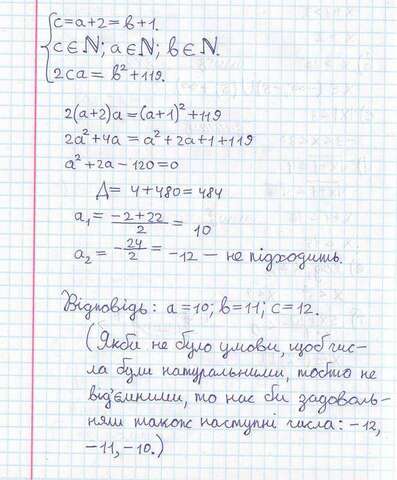 c=a+2=b+1.
c∈ℕ; a∈ℕ; b∈ℕ.
2ca=b²+119.
2(a+2)a=(a+1)²+119
2a²+4a=a²+2a+1+119
a²+2a-120=0
Д=4+480=484
a₁=(-2+22)/2=10
a₂=-24/2=-12 — не підходить.
Відповідь: a=10; b=11; c=12.
(Якби не було умови, щоб чис-
ла були натуральними, тобто не
від'ємними, то нас би задоволь-
няли також наступні числа: -12,
-11, -10.)